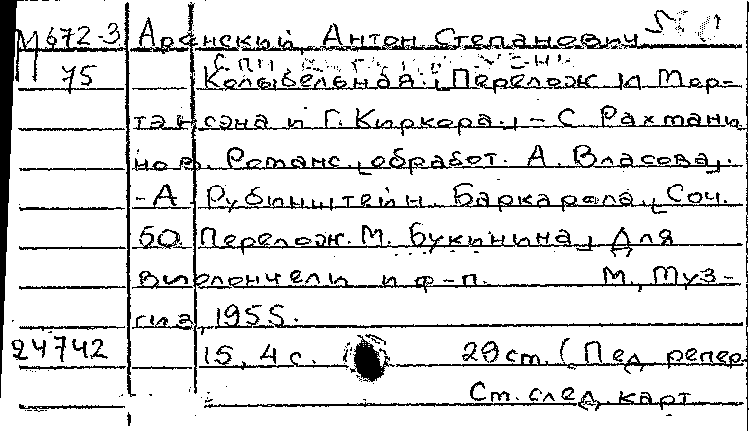 М672-3 Аренский, Антон Степанович
75 Колыбельная. [Перелож И Мор-
тенсэна и Г. Киркора.] - С. Рахмани
нов. Романс. [обработ. А. Власова].
- А Рубинштейн. Баркарола. [Соч.
50 Перелож. М. Букинина] Для
виолончели и ф-п. М., Муз-
гиз, 1955.
24742 15, 4 с. 29 ст. (Пед репер
Ст. след. карт